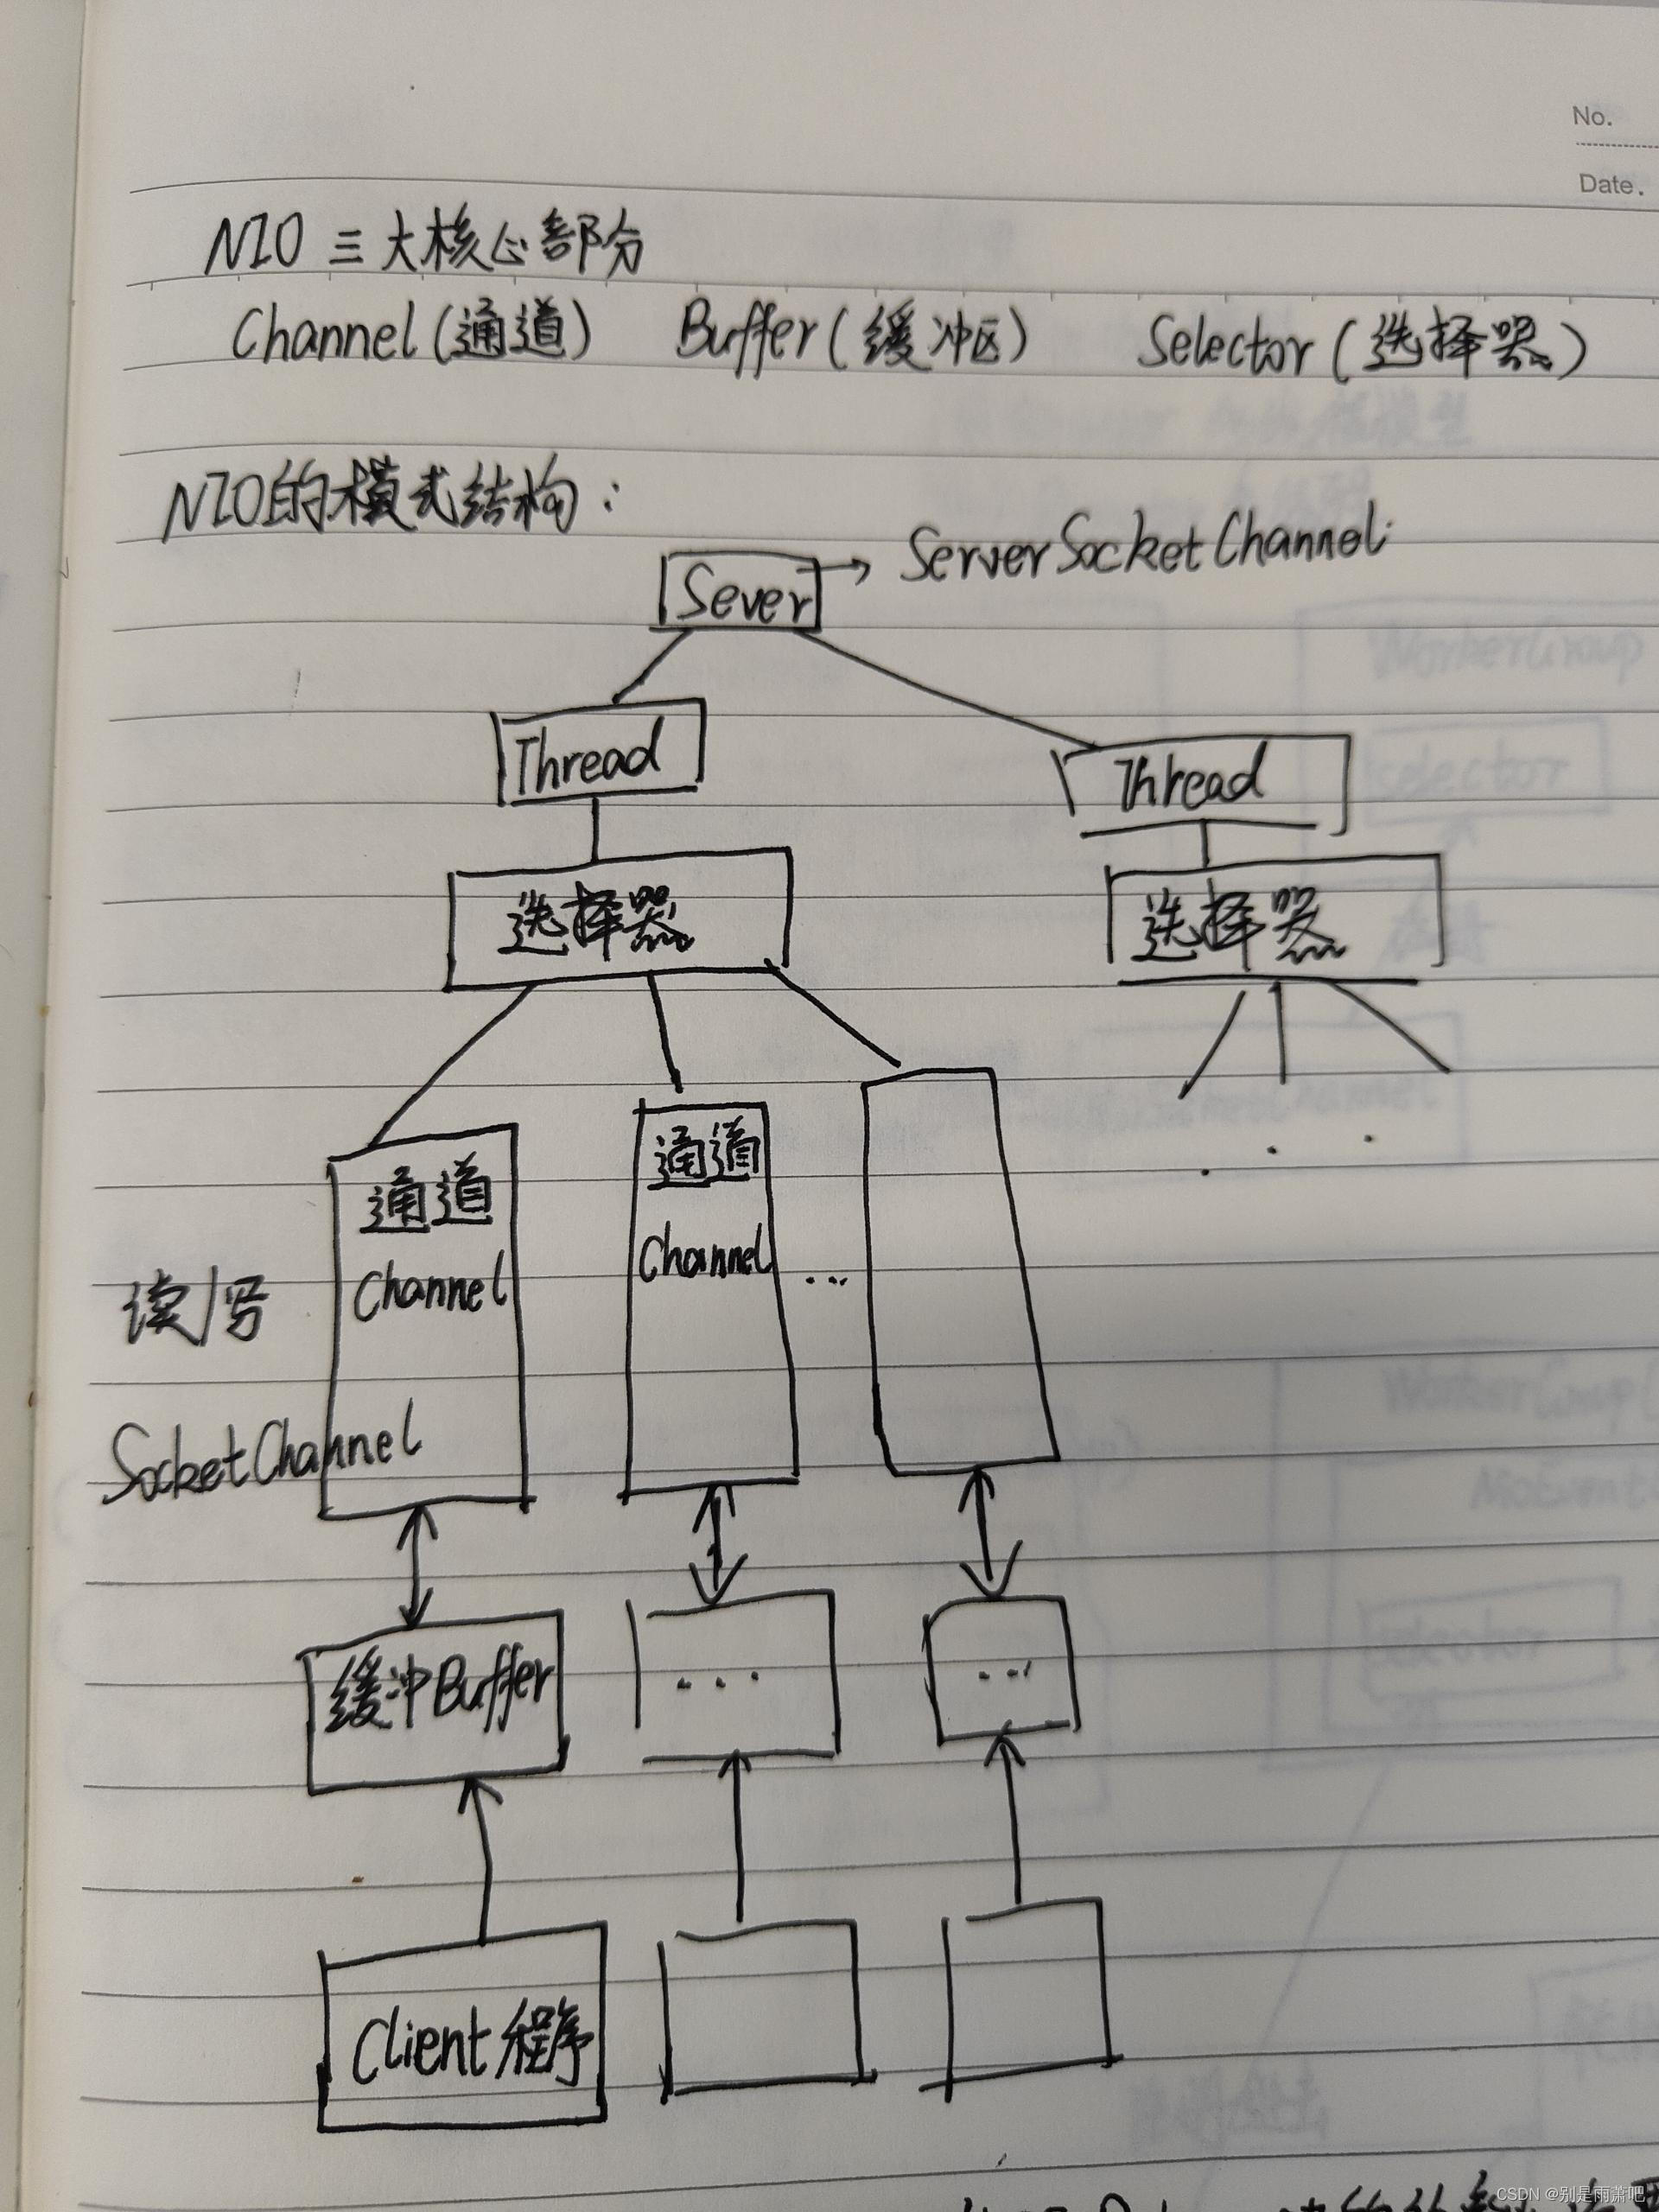 No.
Date.
NIO 三大核心部分
Channel(通道) Buffer(缓冲区) Selector(选择器)
NIO的模式结构:
Sever → ServerSocketChannel
Thread Thread
选择器 选择器
通道 通道
Channel Channel ...
读/写
SocketChannel
缓冲Buffer ... ...
Client程序
CSDN @别是雨萧吧